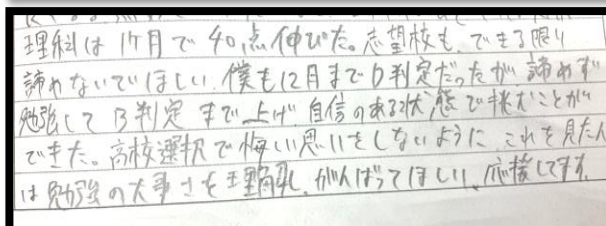 理科は1ヶ月で40点伸びた。志望校も、できる限り
諦めないでほしい。僕も12月までD判定だったが諦めず
勉強してB判定まで上げ、自信のある状態で挑むことが
できた。高校選択で悔しい思いをしないように、これを見た人
は勉強の大事さを理解し、がんばってほしい、応援してます。